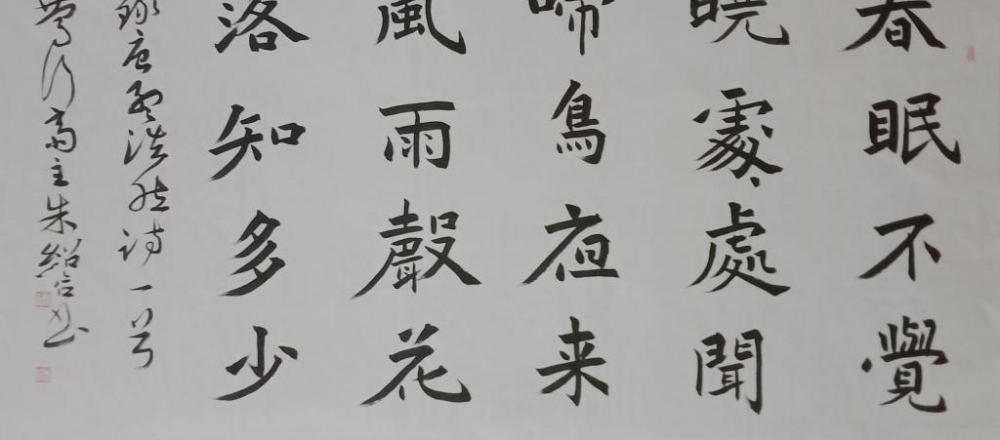 春眠不覺
曉處處聞
啼鳥夜来
風雨聲花
落知多少
錄唐孟浩然诗一首
斋主朱紹信书